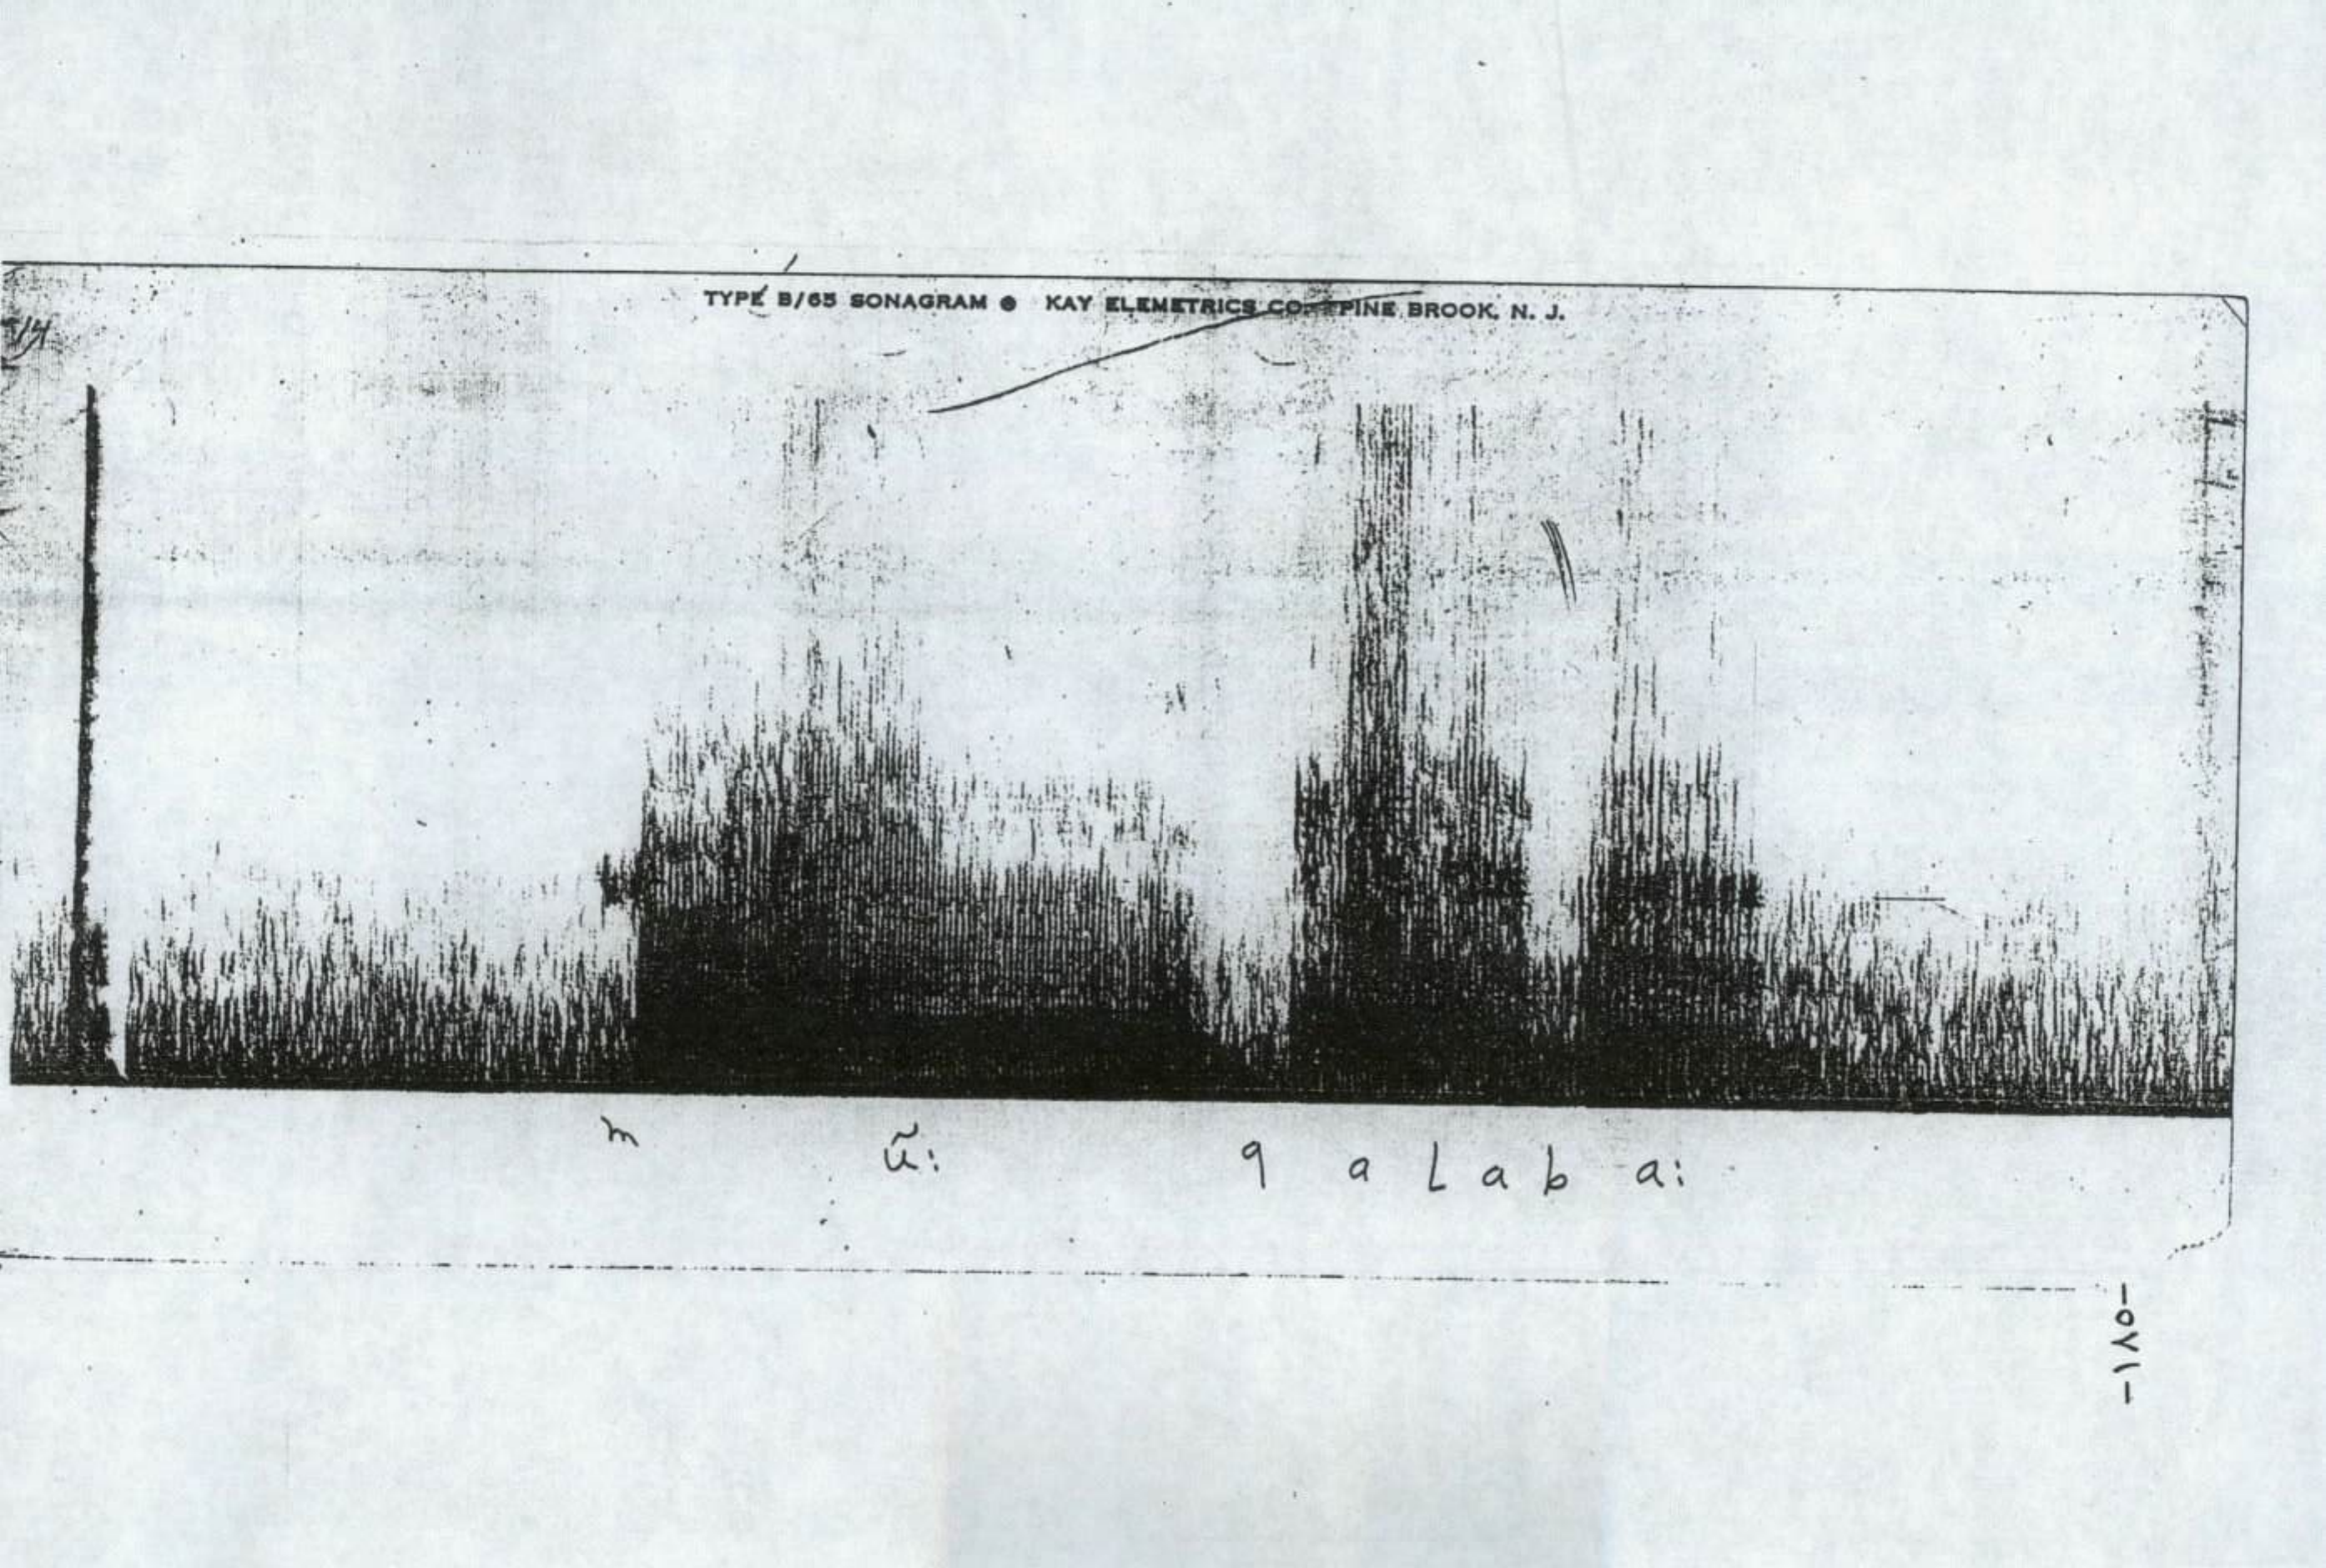 TYPE B/65 SONAGRAM ® KAY ELEMETRICS CO. PINE BROOK, N. J.
14
m ũ: q a l a b a:
-١٧٥-